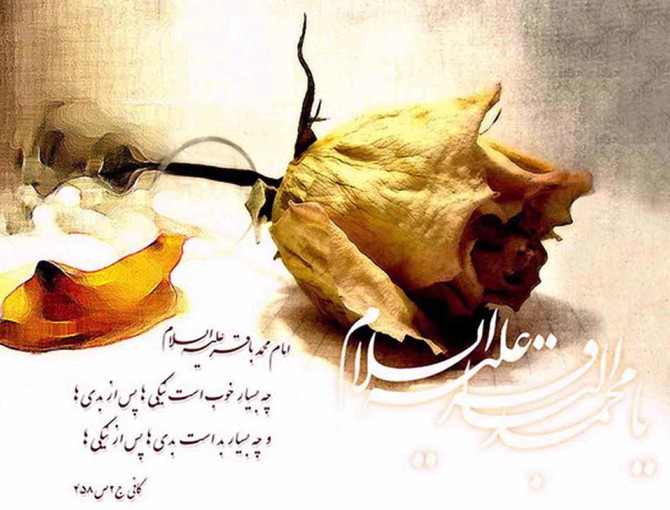 یا محمد الباقر علیه السلام
امام محمد باقر علیه السلام
چه بسیار خوب است نیکی ها پس از بدی ها
و چه بسیار بد است بدی ها پس از نیکی ها
کافی ج۲ص۴۵۸